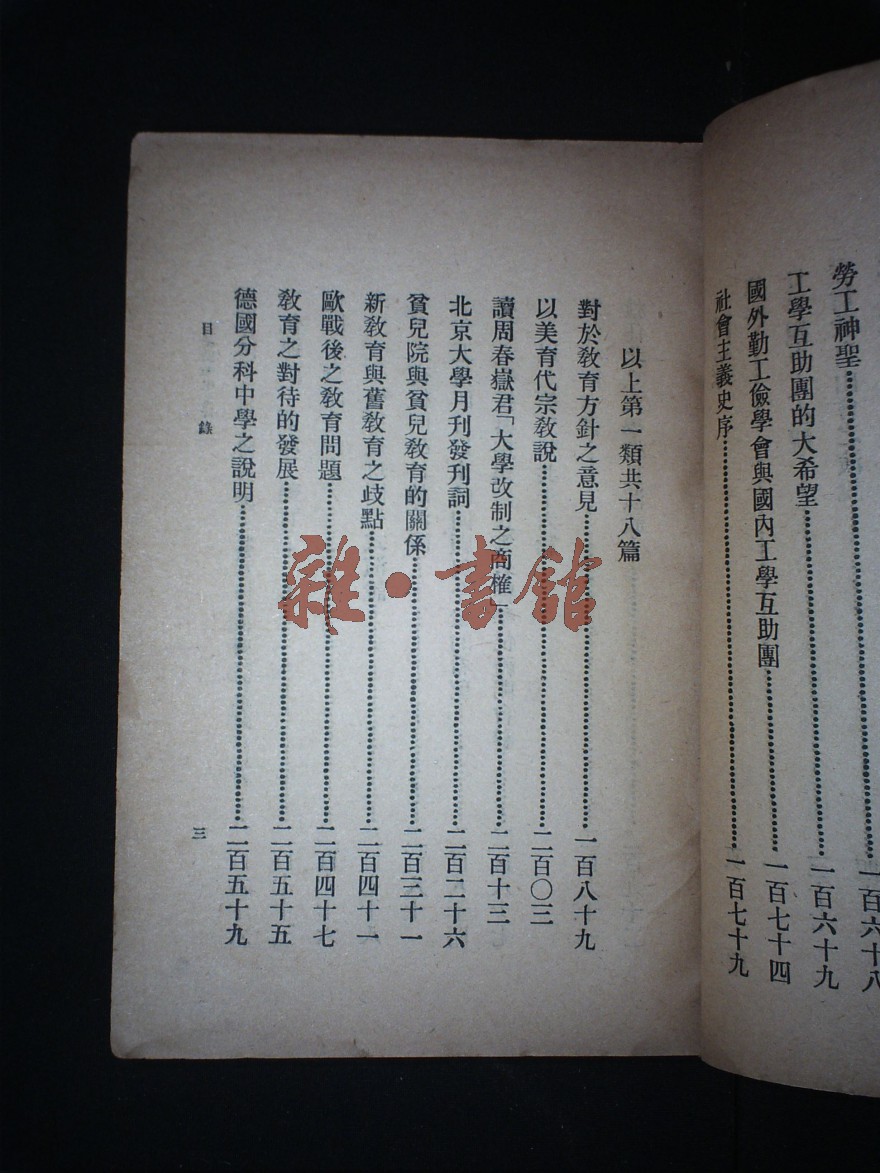 勞工神聖……一百六十八
工學互助團的大希望……一百六十九
國外勤工儉學會與國內工學互助團……一百七十四
社會主義史序……一百七十九
以上第一類共十八篇
對於教育方針之意見……一百八十九
以美育代宗教說……二百〇三
讀周春嶽君「大學改制之商榷」……二百十三
北京大學月刊發刊詞……二百二十六
貧兒院與貧兒教育的關係……二百三十一
新教育與舊教育之歧點……二百四十一
歐戰後之教育問題……二百四十七
教育之對待的發展……二百五十五
德國分科中學之說明……二百五十九
目錄
三
雜·書館